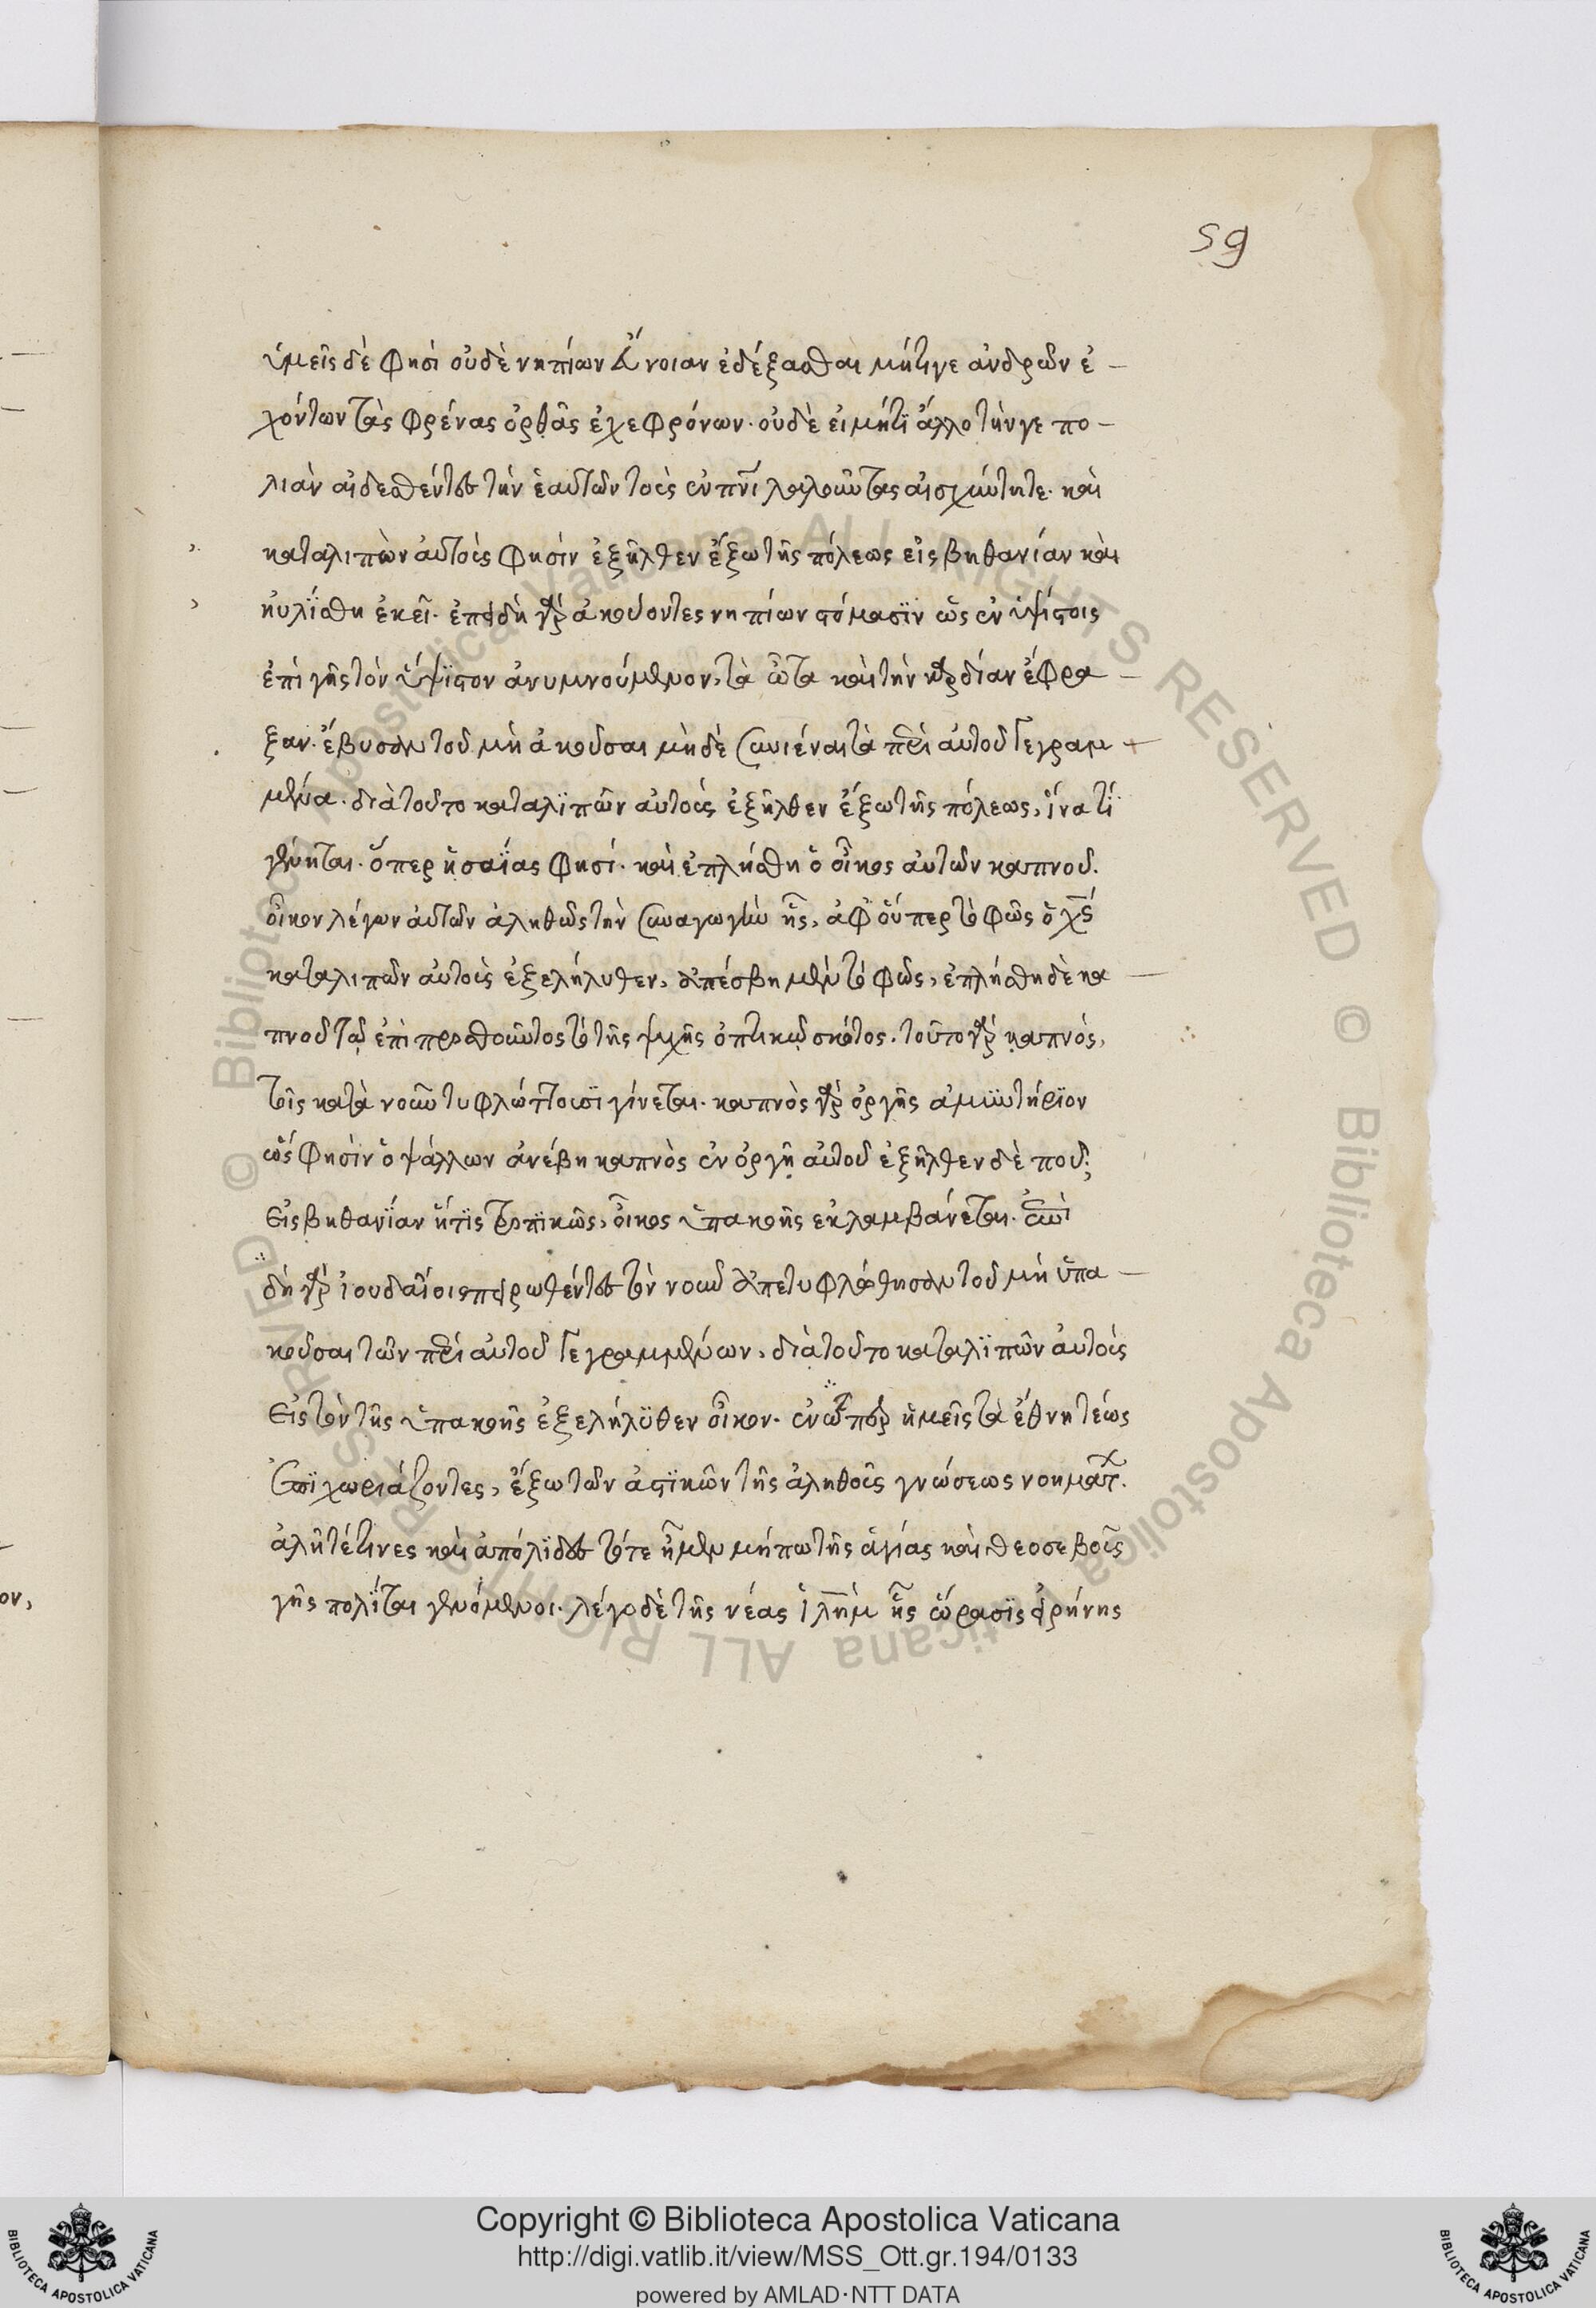 59
ὑμεῖς δὲ φησὶ οὐδὲ νηπίων ἔννοιαν ἐδέξασθαι μήτιγε ἀνδρῶν ἐ
χόντων τὰς φρένας ὀρθὰς ἐχεφρόνων. οὐδὲ εἰ μήτι ἄλλο τήνγε πο
λιὰν αἰδεσθέντες τὴν ἑαυτῶν τοὺς ἐν πνι λαλοῦντας αἰσχύνητε. καὶ
καταλιπὼν αὐτοὺς φησὶν ἐξῆλθεν ἔξω τῆς πόλεως εἰς βηθανίαν καὶ
ηὐλίσθη ἐκεῖ. ἐπειδὴ γὰρ ἀκούοντες νηπίων στόμασιν ὡς ἐν ὑψίστοις
ἐπὶ γῆς τὸν ὕψιστον ἀνυμνούμενον, τὰ ὦτα καὶ τὴν καρδίαν ἔφρα
ξαν. ἔβυσαν τοῦ μὴ ἀκοῦσαι μηδὲ συνιέναι τὰ περὶ αὐτοῦ γεγραμ
μένα. διὰ τοῦτο καταλιπὼν αὐτοὺς ἐξῆλθεν ἔξω τῆς πόλεως, ἵνα τί
γένηται. ὅπερ ἠσαΐας φησί. καὶ ἐπλήσθη ὁ οἶκος αὐτῶν καπνοῦ.
οἶκον λέγων αὐτῶν ἀληθῶς τὴν συναγωγὴν ἧς, ἀφ οὗπερ τὸ φῶς ὁ χς
καταλιπὼν αὐτοὺς ἐξελήλυθεν, ἀπέσβη μὲν τὸ φῶς, ἐπλήσθη δὲ κα
πνοῦ τῷ ἐπιπροσθοῦντος τὸ τῆς ψυχῆς ὀπτικῷ σκότος. τοῦτο γὰρ καπνὸς,
τοῖς κατὰ νοῦν τυφλώττουσι γίνεται. καπνὸς γὰρ ὀργῆς ἀμυντήριον
ὥς φησὶν ὁ ψάλλων ἀνέβη καπνὸς ἐν ὀργῇ αὐτοῦ ἐξῆλθεν δὲ ποῦ;
εἰς βηθανίαν ἥτις τροπικῶς, οἶκος ὑπακοῆς ἐκλαμβάνεται. ἐπεὶ
δὴ γὰρ ἰουδαῖοι πειρωθέντες τὸν νοῦν ἀπετυφλώθησαν τοῦ μὴ ὑπα
κοῦσαι τῶν περὶ αὐτοῦ γεγραμμένων, διὰ τοῦτο καταλιπὼν αὐτοὺς
εἰς τὸν τῆς ὑπακοῆς ἐξελήλυθεν οἶκον. ἐν ᾧπερ ἡμεῖς τὰ ἔθνη τέως
ἐπιχωριάζοντες, ἔξω τῶν ἀστικῶν τῆς ἀληθοῦς γνώσεως νοημάτ.
ἀλῆτέ τινες καὶ ἀπόλιδες τότε ἦμεν μήπω τῆς ἁγίας καὶ θεοσεβοῦς
γῆς πολῖται γενόμενοι. λέγω δὲ τῆς νέας ἱλημ ἧς ὥρασις εἰρήνης
Copyright © Biblioteca Apostolica Vaticana
http://digi.vatlib.it/view/MSS_Ott.gr.194/0133
powered by AMLAD·NTT DATA